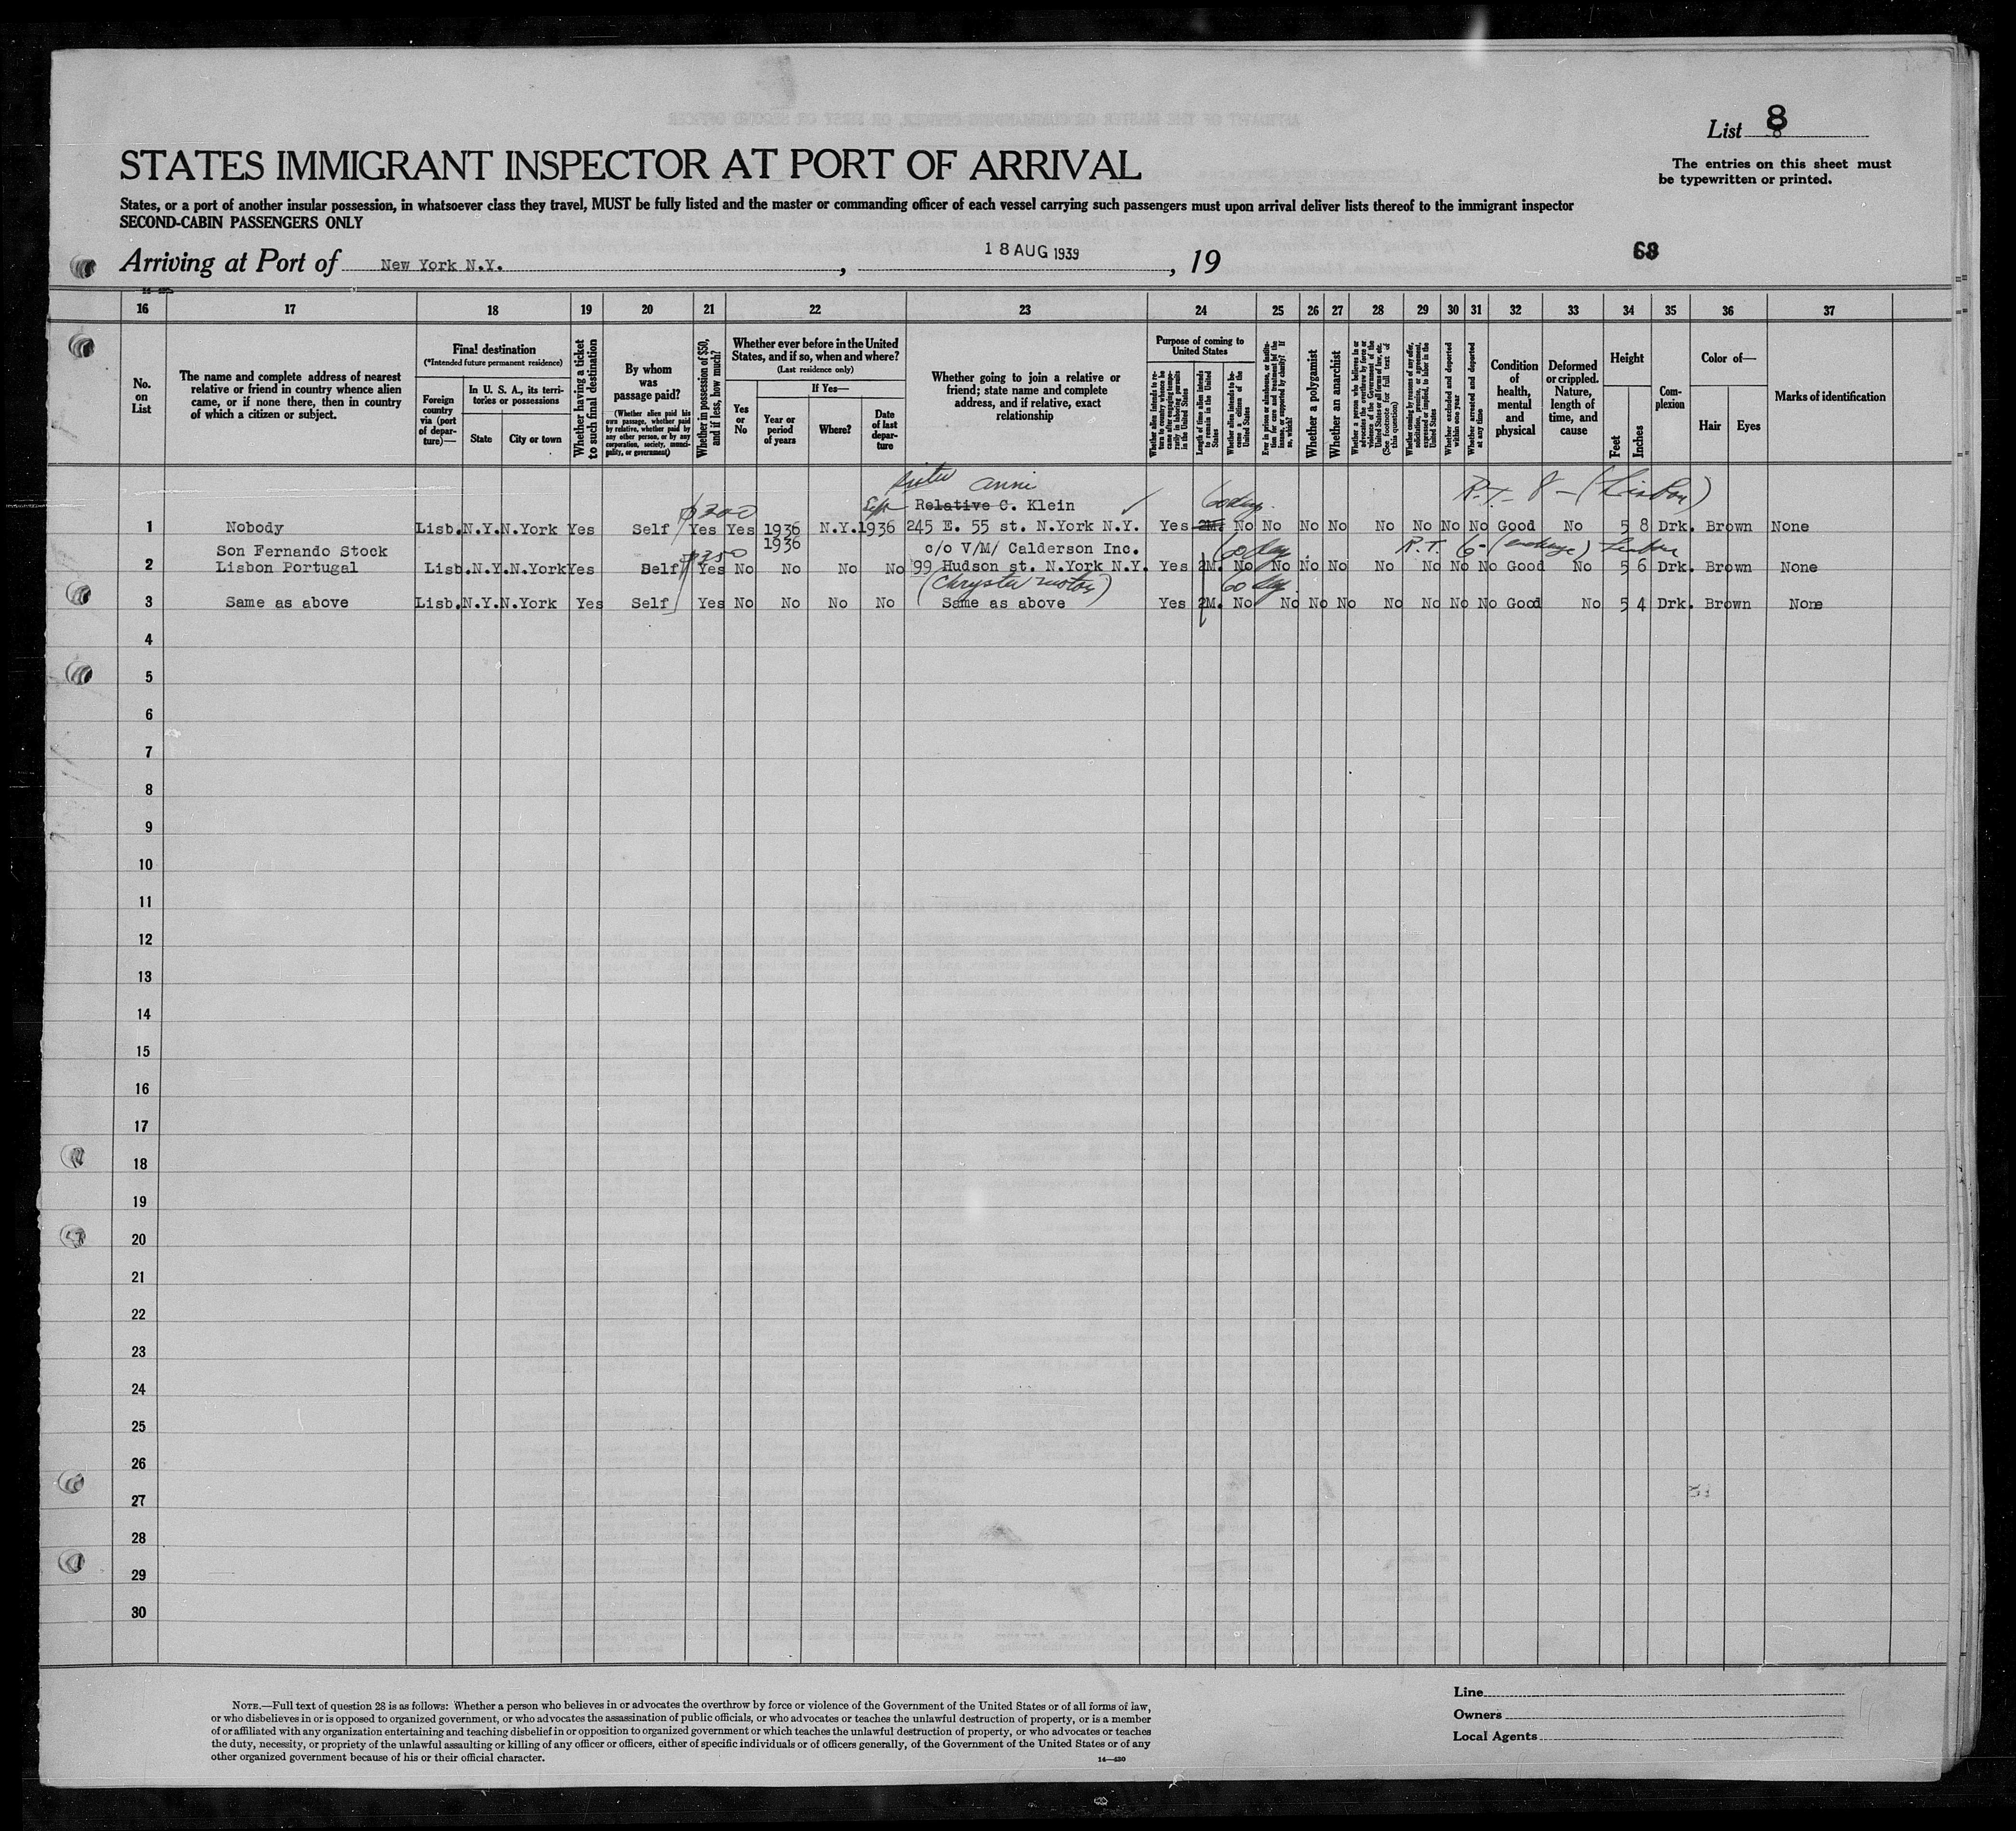 List 8
The entries on this sheet must
be typewritten or printed.
STATES IMMIGRANT INSPECTOR AT PORT OF ARRIVAL
States, or a port of another insular possession, in whatsoever class they travel, MUST be fully listed and the master or commanding officer of each vessel carrying such passengers must upon arrival deliver lists thereof to the immigrant inspector
SECOND-CABIN PASSENGERS ONLY
Arriving at Port of New York N.Y. , 18 AUG 1939 , 19
68
16 17 18 19 20 21 22 23 24 25 26 27 28 29 30 31 32 33 34 35 36 37
No.
on
List
The name and complete address of nearest
relative or friend in country whence alien
came, or if none there, then in country
of which a citizen or subject.
Final destination
(*Intended future permanent residence)
Foreign
country
via (port
of depar-
ture)—
In U. S. A., its terri-
tories or possessions
State
City or town
Whether having a ticket
to such final destination
By whom
was
passage paid?
(Whether alien paid his
own passage, whether paid
by relative, whether paid by
any other person, or by any
corporation, society, munici-
pality, or government)
Whether in possession of $50,
and if less, how much?
Whether ever before in the United
States, and if so, when and where?
(Last residence only)
Yes
or
No
If Yes—
Year or
period
of years
Where?
Date
of last
depar-
ture
Whether going to join a relative or
friend; state name and complete
address, and if relative, exact
relationship
Purpose of coming to
United States
Whether alien intends to re-
turn to country whence he
came after engaging tempo-
rarily in laboring pursuits
in the United States
Length of time alien intends
to remain in the United
States
Whether alien intends to be-
come a citizen of the
United States
Ever in prison or almshouse, or institu-
tion for care and treatment of the
insane, or supported by charity? If
so, which?
Whether a polygamist
Whether an anarchist
Whether a person who believes in or
advocates the overthrow by force or
violence of the Government of the
United States or all forms of law, etc.
(See footnote for full text of
this question)
Whether coming by reasons of any offer,
solicitation, promise, or agreement,
expressed or implied, to labor in the
United States
Whether excluded and deported
within one year
Whether arrested and deported
at any time
Condition
of
health,
mental
and
physical
Deformed
or crippled.
Nature,
length of
time, and
cause
Height
Feet
Inches
Com-
plexion
Color of—
Hair
Eyes
Marks of identification
sister Anni
$200 Sept Relative C. Klein 60 days. R.T. 8 - (Lisbon)
1 Nobody Lisb. N.Y. N.York Yes Self Yes Yes 1936 N.Y. 1936 245 E. 55 st. N.York N.Y. Yes 2M. No No No No No No No No Good No 5 8 Drk. Brown None
Son Fernando Stock $350 1936 c/o V/M/ Calderson Inc. 60 days R.T. 6-
2 Lisbon Portugal Lisb. N.Y. N.York Yes Self Yes No No No No 99 Hudson st. N.York N.Y. Yes 2M. No No No No No No No No Good No 5 6 Drk. Brown None
(Chrysler motors) 60 days
3 Same as above Lisb. N.Y. N.York Yes Self Yes No No No No Same as above Yes 2M. No No No No No No No No Good No 5 4 Drk. Brown None
4
5
6
7
8
9
10
11
12
13
14
15
16
17
18
19
20
21
22
23
24
25
26
27
28
29
30
NOTE.—Full text of question 28 is as follows: Whether a person who believes in or advocates the overthrow by force or violence of the Government of the United States or of all forms of law,
or who disbelieves in or is opposed to organized government, or who advocates the assassination of public officials, or who advocates or teaches the unlawful destruction of property, or is a member
of or affiliated with any organization entertaining and teaching disbelief in or opposition to organized government or which teaches the unlawful destruction of property, or who advocates or teaches
the duty, necessity, or propriety of the unlawful assaulting or killing of any officer or officers, either of specific individuals or of officers generally, of the Government of the United States or of any
other organized government because of his or their official character.
14—430
Line
Owners
Local Agents